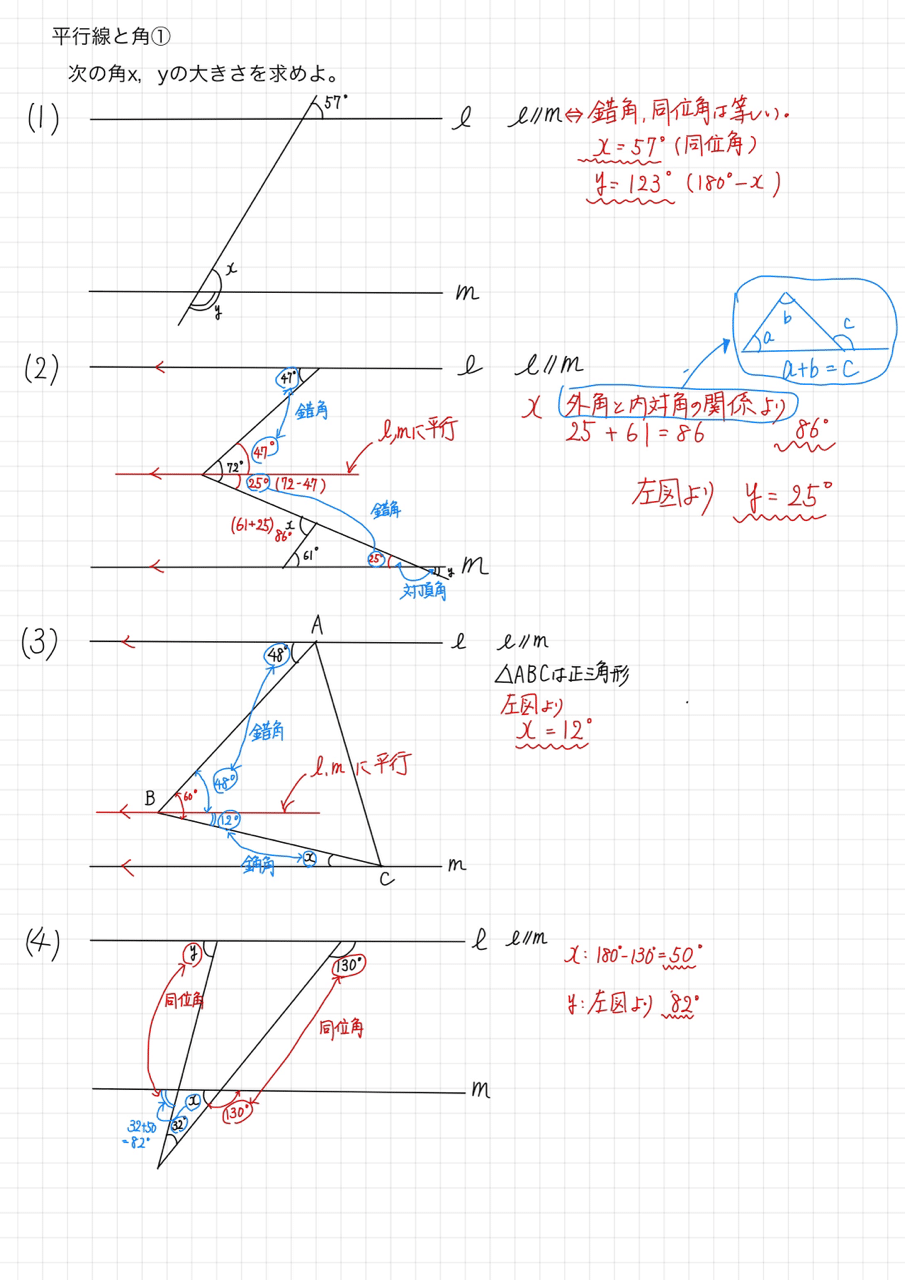 平行線と角①
次の角x, yの大きさを求めよ。
(1)
57°
ℓ
x
y
m
ℓ//m⇔錯角,同位角は等しい。
x=57°(同位角)
y=123°(180°-x)
(2)
47°
ℓ
錯角
47°
72°
25°(72-47)
ℓ,mに平行
錯角
(61+25)
86°
x
61°
25°
y
m
対頂角
ℓ//m
x 外角と内対角の関係より
25+61=86 86°
左図より y=25°
a
b
c
a+b=c
(3)
A
ℓ
48°
錯角
48°
ℓ,mに平行
B
60°
12°
錯角
x
m
C
ℓ//m
△ABCは正三角形
左図より
x=12°
(4)
ℓ
y
130°
同位角
同位角
m
x
130°
32°
32+50
=82°
ℓ//m
x:180°-130°=50°
y:左図より 82°